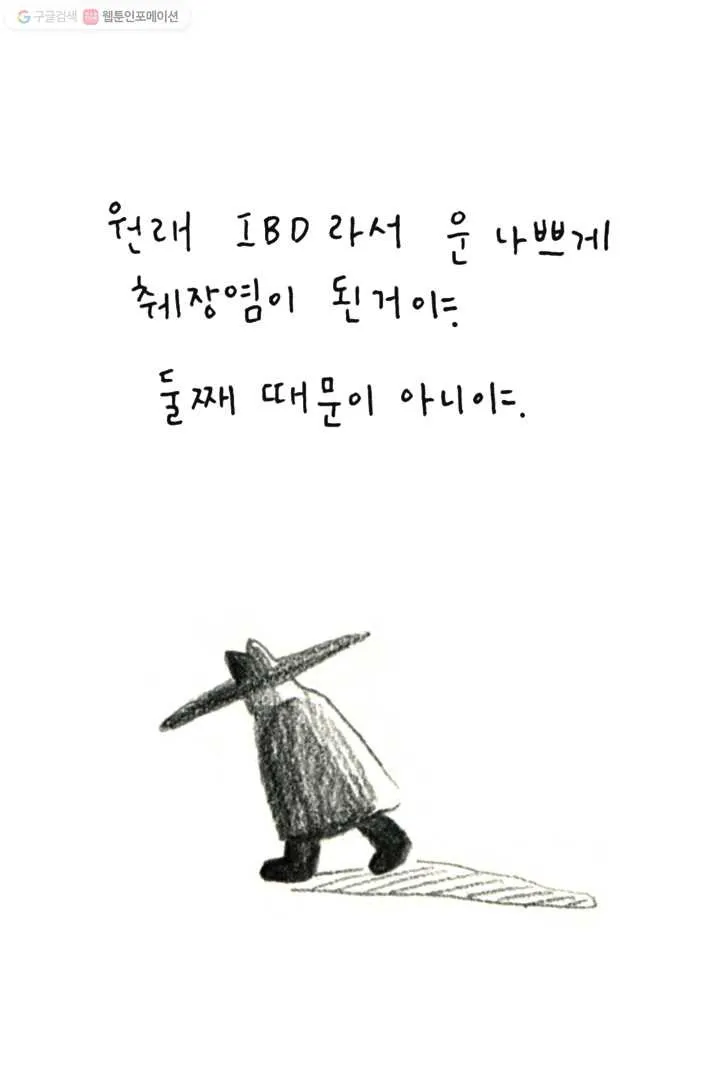 구글검색 웹툰인포메이션
원래 IBD라서 운 나쁘게
췌장염이 된거야.
둘째 때문이 아니야.